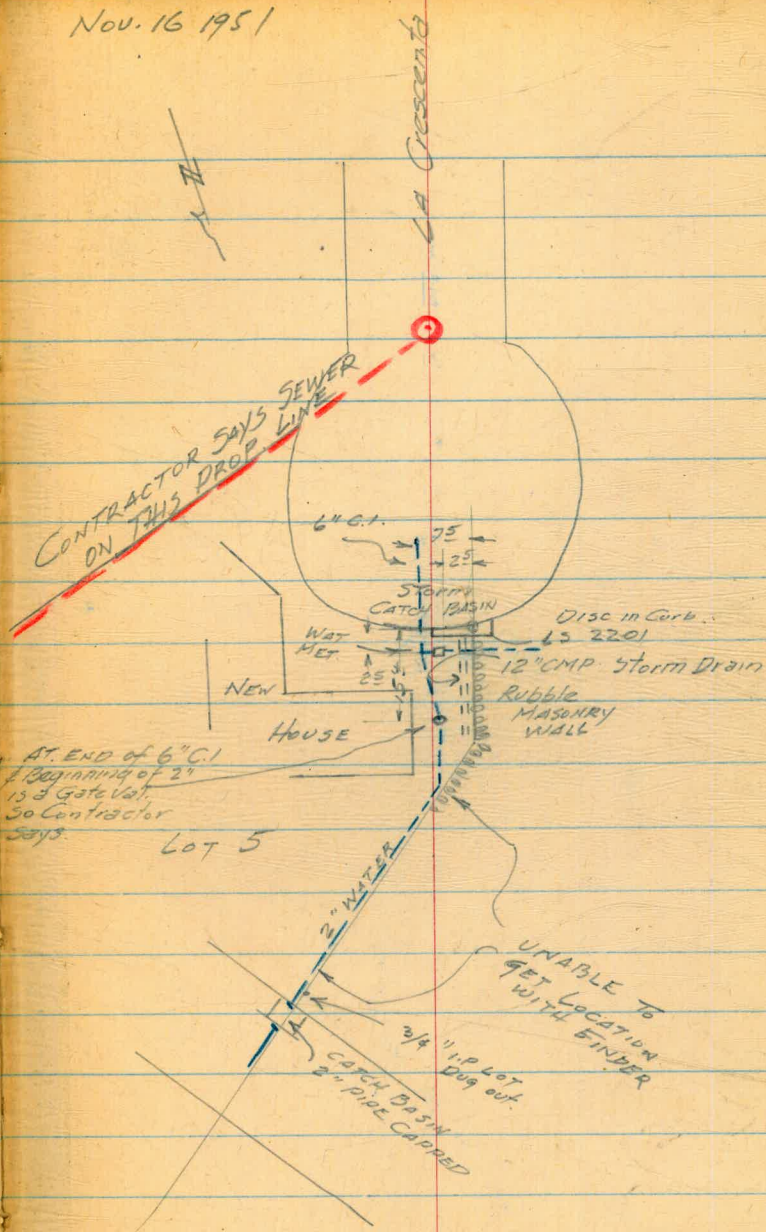 Nov. 16 1951
LA Crescenta
N
CONTRACTOR SAYS SEWER
ON THIS PROP LINE
6" C.I.
75
25
STORM
CATCH BASIN
Disc in Curb
LS 2201
WAT
MET.
25
15
12" CMP Storm Drain
Rubble
MASONRY
WALL
NEW
HOUSE
AT. END of 6" C.I
& Beginning of 2"
is a Gate Val.
So Contractor
Says.
LOT 5
2" WATER
UNABLE TO
GET LOCATION
WITH FINDER
3/4" I.P LOT
DUG OUT.
CATCH BASIN
2" PIPE CAPPED